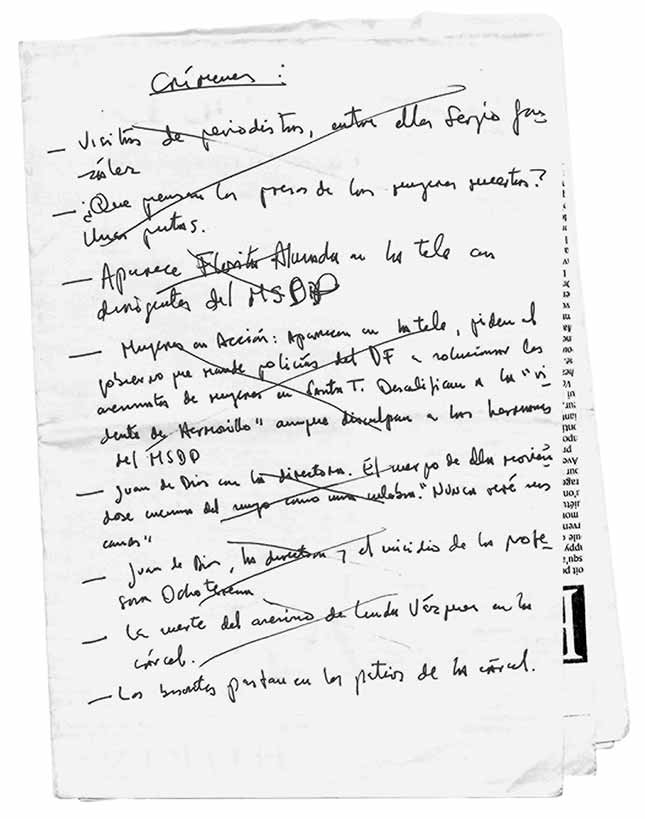 Crímenes :
— Visitas de periodistas, entre ellos Sergio Gon
zález
— ¿Que piensan los presos de las mujeres muertas?
Unas putas.
— Aparece Florita Almada en la tele con
dirigentes del MSDP
— Mujeres en Acción: Aparecen en la tele, piden al
gobierno que mande policías del DF a solucionar los
asesinatos de mujeres en Santa T. Descalifican a la "vi
dente de Hermosillo" aunque disculpan a las hermanas
del MSDP
— Juan de Dios con la directora. El cuerpo de ella movién
dose encima del suyo como una culebra. "Nunca seré
"
— Juan de Dios, la directora y el suicidio de la profe
sora Ochoterena
— La muerte del asesino de Linda Vázquez en la
cárcel.
— Los bisontes pastan en los patios de la cárcel.